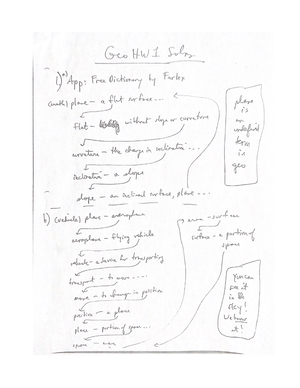 Geo HW 1 Solns
1) a) App: Free Dictionary by Farlex
(math) plane - a flat surface...
flat - without slope or curvature
curvature - the change in inclination...
inclination - a slope
slope - an inclined surface, plane...
plane is an undefined term in geo
b) (vehicle) plane - aeroplane
aeroplane - flying vehicle
vehicle - a device for transporting
transport - to move....
move - to change in position
position - a place
place - portion of space...
space - area
area - surface
surface - a portion of space
You can see it in the sky!